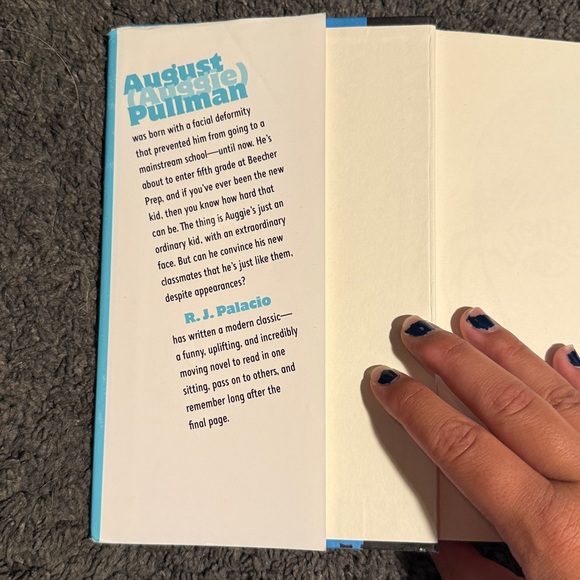 August
(Auggie)
Pullman
was born with a facial deformity
that prevented him from going to a
mainstream school—until now. He's
about to enter fifth grade at Beecher
Prep, and if you've ever been the new
kid, then you know how hard that
can be. The thing is Auggie's just an
ordinary kid, with an extraordinary
face. But can he convince his new
classmates that he's just like them,
despite appearances?
R. J. Palacio
has written a modern classic—
a funny, uplifting, and incredibly
moving novel to read in one
sitting, pass on to others, and
remember long after the
final page.